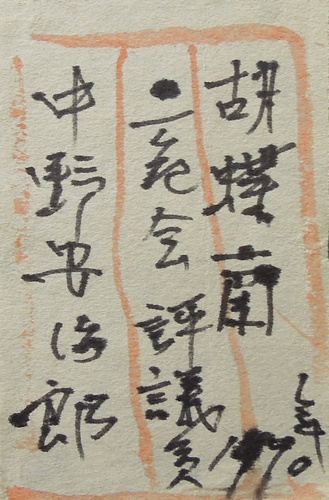 胡蝶蘭
●二紀会評議員
中野安治郎
1970年